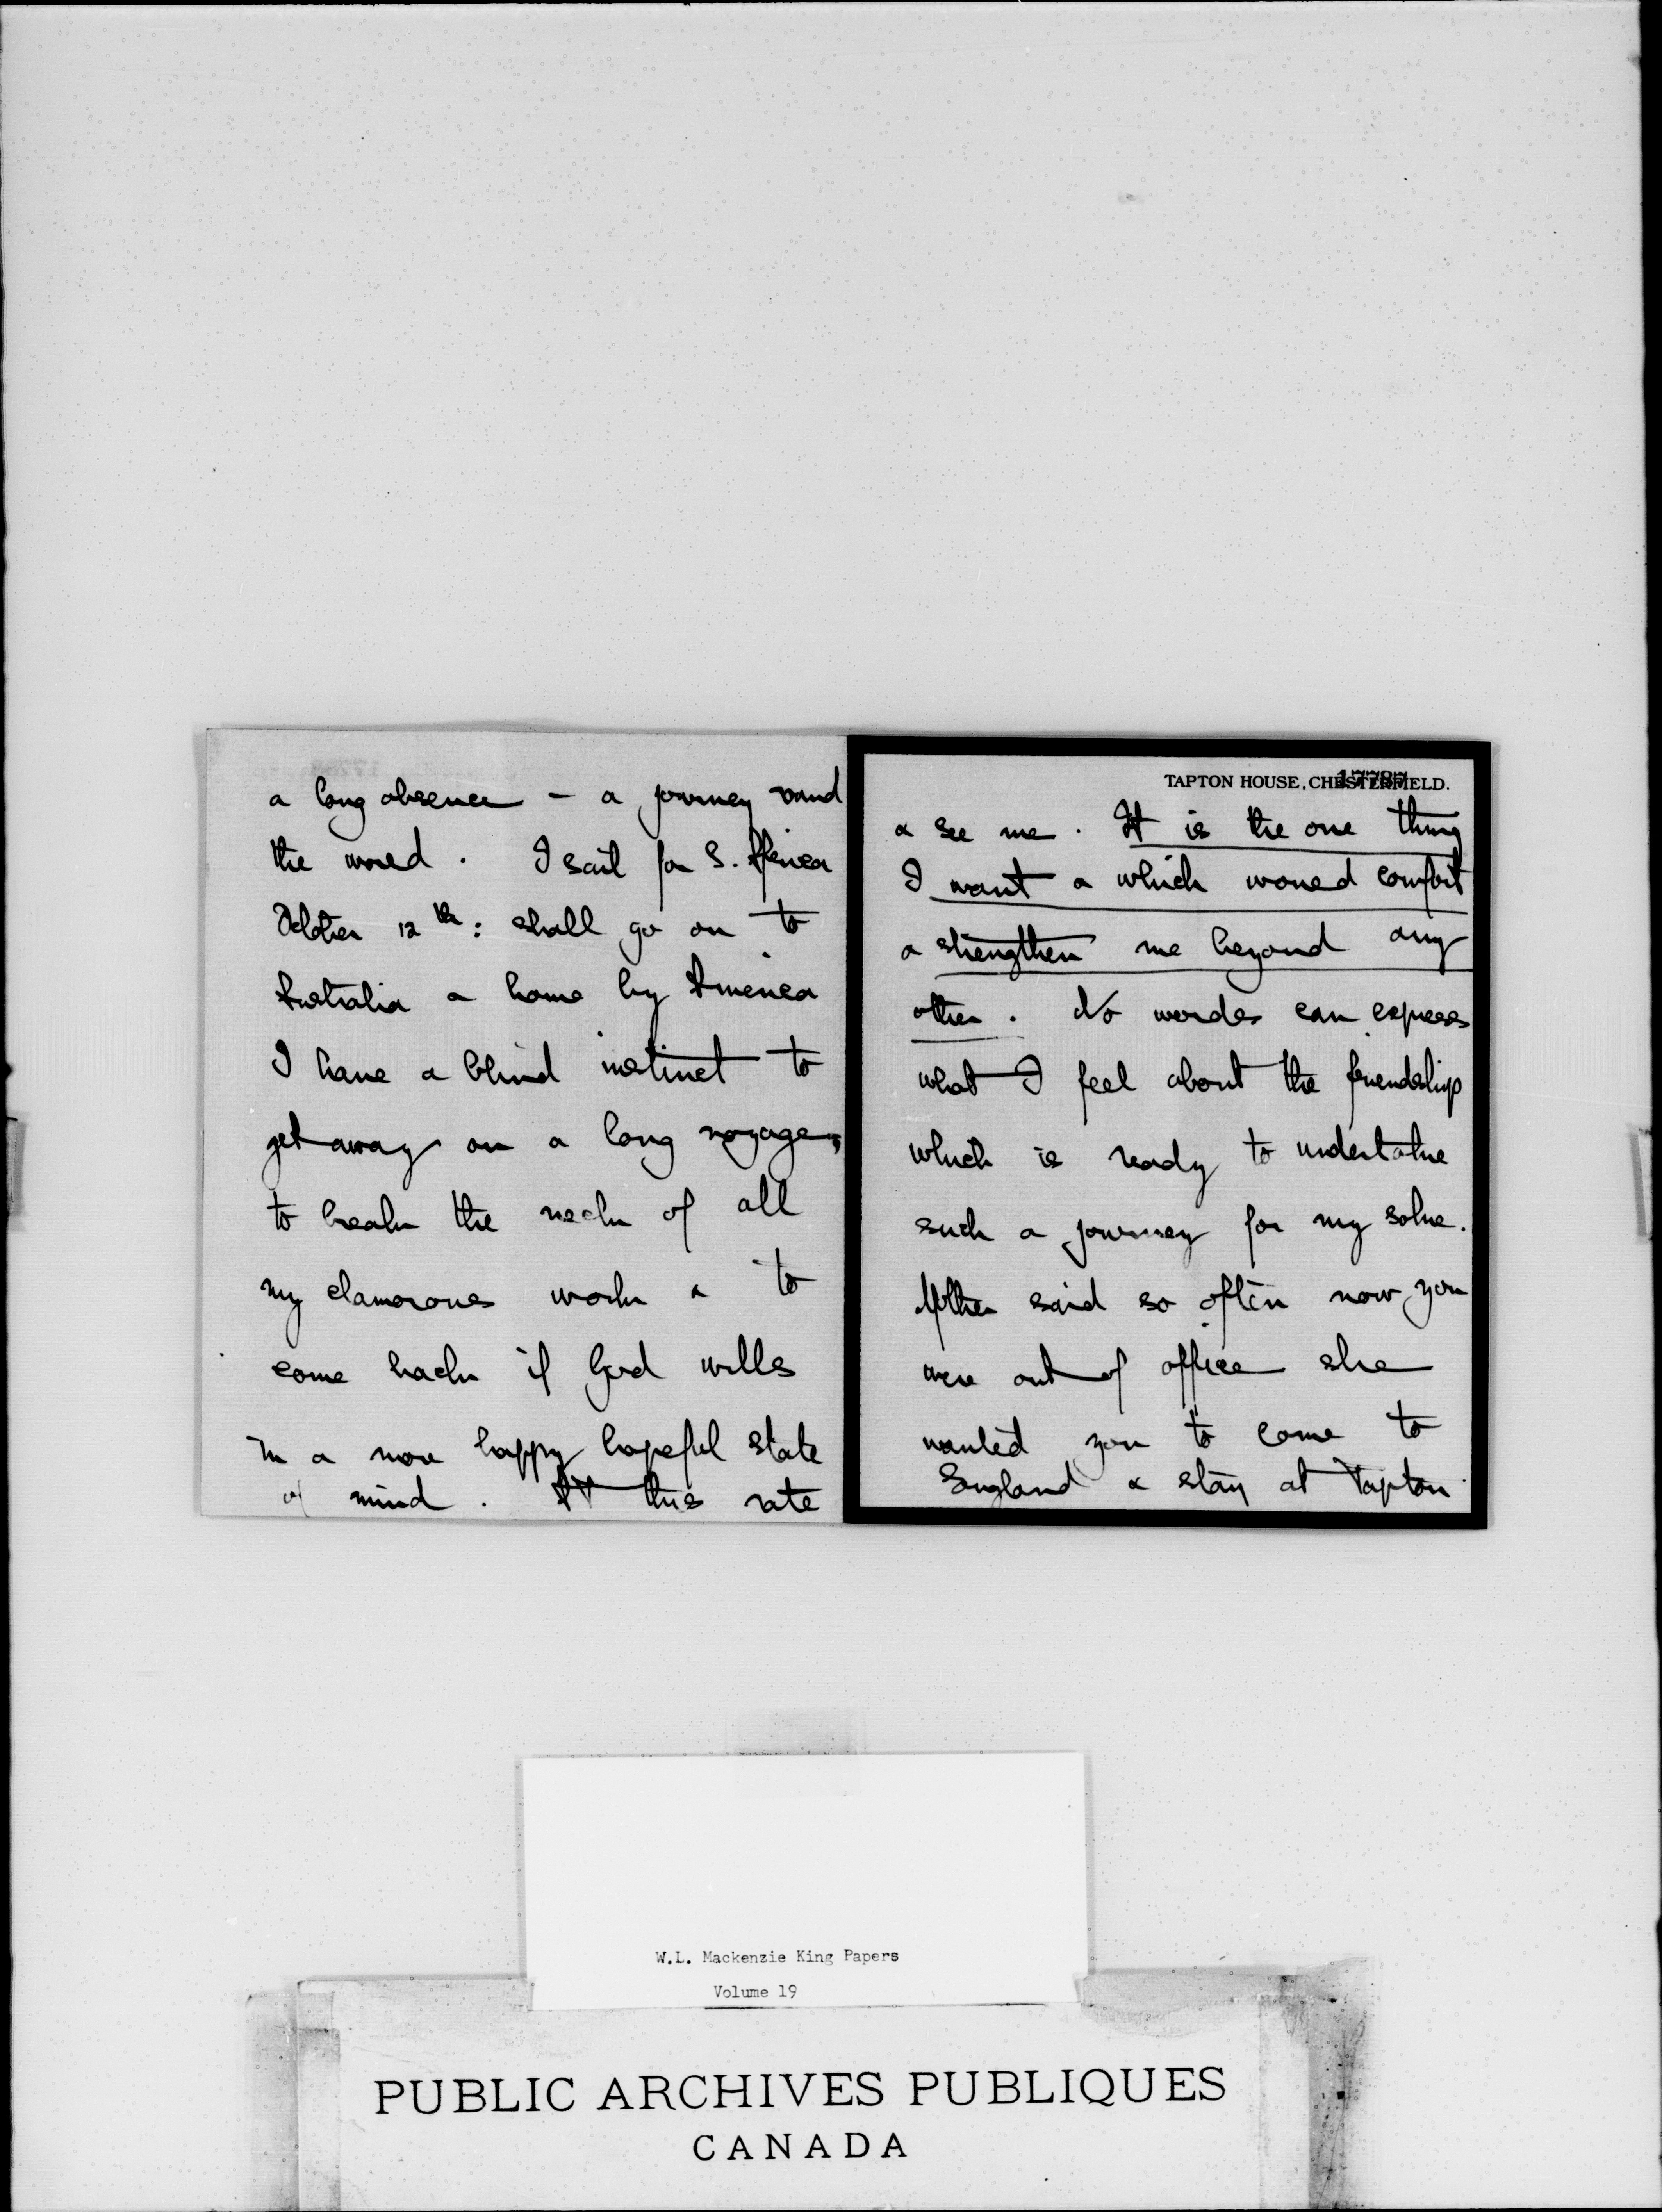 a long absence – a journey round
the world. I sail for S. Africa
October 12th: shall go on to
Australia & home by America
I have a blind instinct to
get away on a long voyage,
to break the neck of all
my clamorous work & to
come back if God wills
in a more happy hopeful state
of mind. At this rate
TAPTON HOUSE, CHESTERFIELD.
& see me. It is the one thing
I want & which would comfort
& strengthen me beyond any
other. No words can express
what I feel about the friendship
which is ready to undertake
such a journey for my sake.
Mother said so often now you
were out of office she
wanted you to come to
England & stay at Tapton
W.L. Mackenzie King Papers
Volume 19
PUBLIC ARCHIVES PUBLIQUES
CANADA